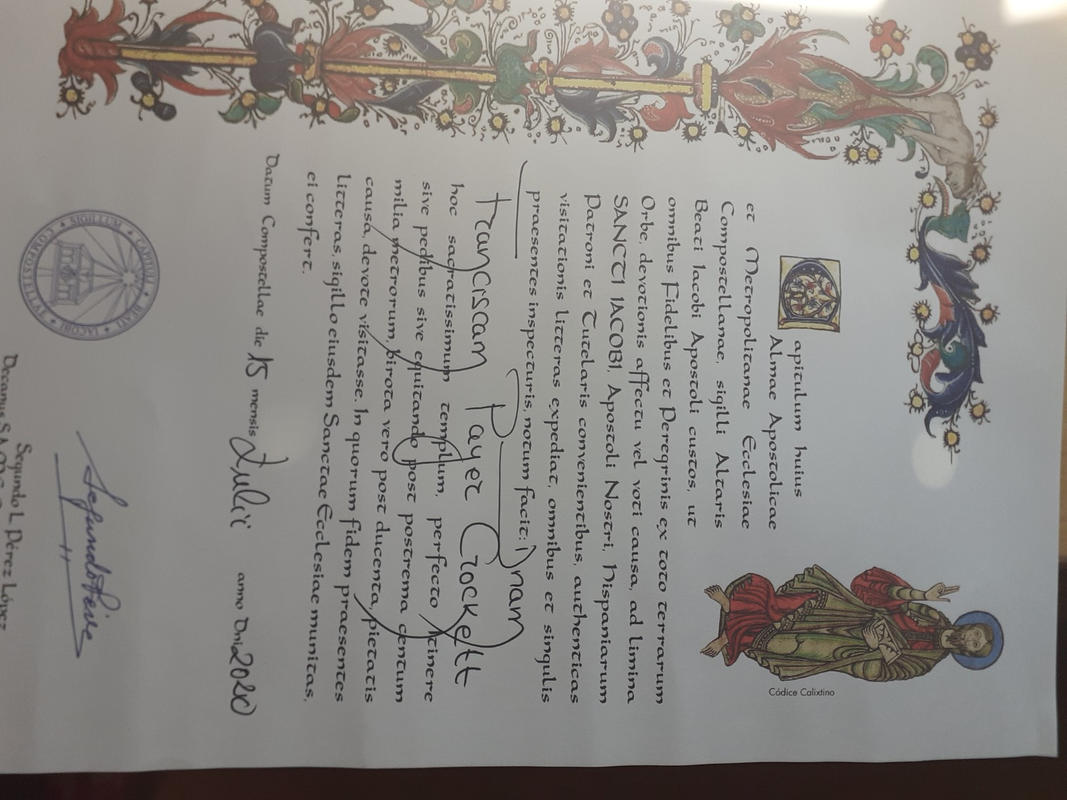 Capitulum huius
Almae Apostolicae
et Metropolitanae Ecclesiae
Compostellanae, sigilli Altaris
Beati Iacobi Apostoli custos, ut
omnibus Fidelibus et Peregrinis ex toto terrarum
Orbe, devotionis affectu vel voti causa, ad limina
SANCTI IACOBI, Apostoli Nostri, Hispaniarum
Patroni et Tutelaris convenientibus, authenticas
visitationis litteras expediat, omnibus et singulis
praesentes inspecturis, notum facit: Dnam
Franciscam Payer Crockett
hoc sacratissimum templum, perfecto itinere
sive pedibus sive equitando post postrema centum
milia metrorum, birota vero post ducenta, pietatis
causa, devote visitasse. In quorum fidem praesentes
litteras, sigillo eiusdem Sanctae Ecclesiae munitas,
ei confert.
Datum Compostellae die 15 mensis Julii anno Dni 2020
Códice Calixtino
SIGILLUM CAPITULI BEATI IACOBI
Segundo L. Pérez López
Decanus S.A.M.E.